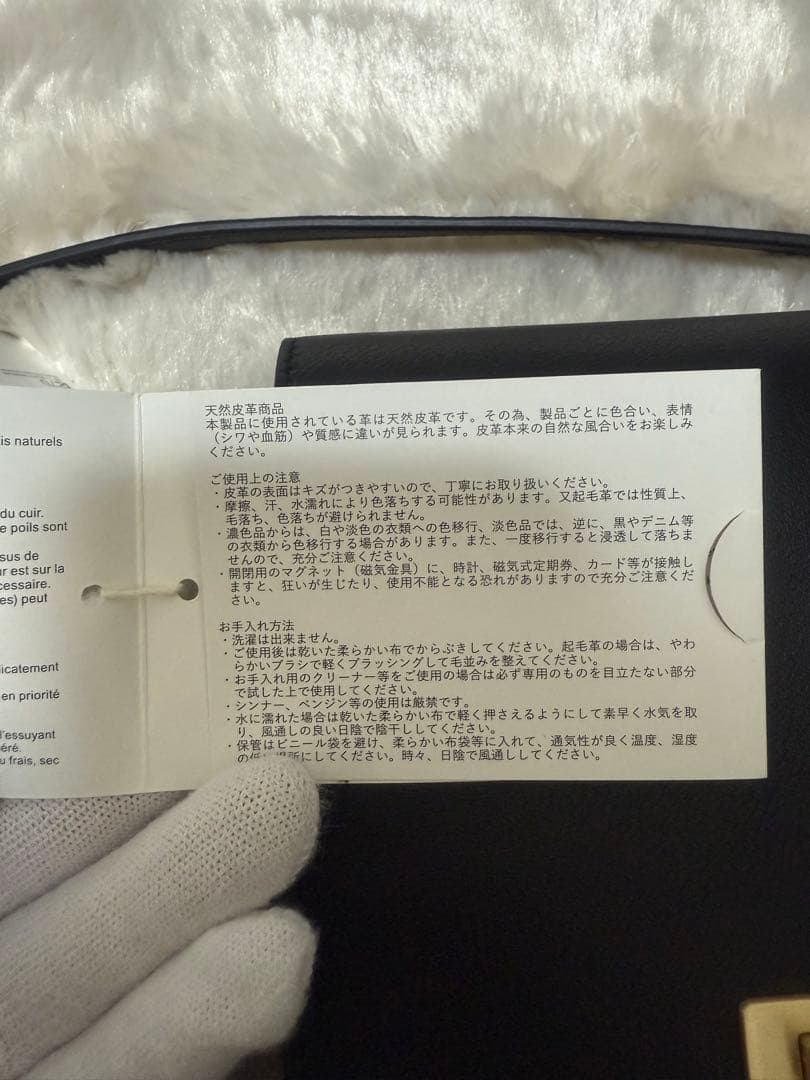 is naturels
du cuir.
e poils sont
sus de
ur est sur la
cessaire.
es) peut
icatement
en priorité
l'essuyant
éré.
u frais, sec
天然皮革商品
本製品に使用されている革は天然皮革です。その為、製品ごとに色合い、表情
（シワや血筋）や質感に違いが見られます。皮革本来の自然な風合いをお楽しみ
ください。
ご使用上の注意
・皮革の表面はキズがつきやすいので、丁寧にお取り扱いください。
・摩擦、汗、水濡れにより色落ちする可能性があります。又起毛革では性質上、
毛落ち、色落ちが避けられません。
・濃色品からは、白や淡色の衣類への色移行、淡色品では、逆に、黒やデニム等
の衣類から色移行する場合があります。また、一度移行すると浸透して落ちま
せんので、充分ご注意ください。
・開閉用のマグネット（磁気金具）に、時計、磁気式定期券、カード等が接触し
ますと、狂いが生じたり、使用不能となる恐れがありますので充分ご注意くだ
さい。
お手入れ方法
・洗濯は出来ません。
・ご使用後は乾いた柔らかい布でからぶきしてください。起毛革の場合は、やわ
らかいブラシで軽くブラッシングして毛並みを整えてください。
・お手入れ用のクリーナー等をご使用の場合は必ず専用のものを目立たない部分
で試した上で使用してください。
・シンナー、ベンジン等の使用は厳禁です。
・水に濡れた場合は乾いた柔らかい布で軽く押さえるようにして素早く水気を取
り、風通しの良い日陰で陰干ししてください。
・保管はビニール袋を避け、柔らかい布袋等に入れて、通気性が良く温度、湿度
の低い場所にしてください。時々、日陰で風通ししてください。